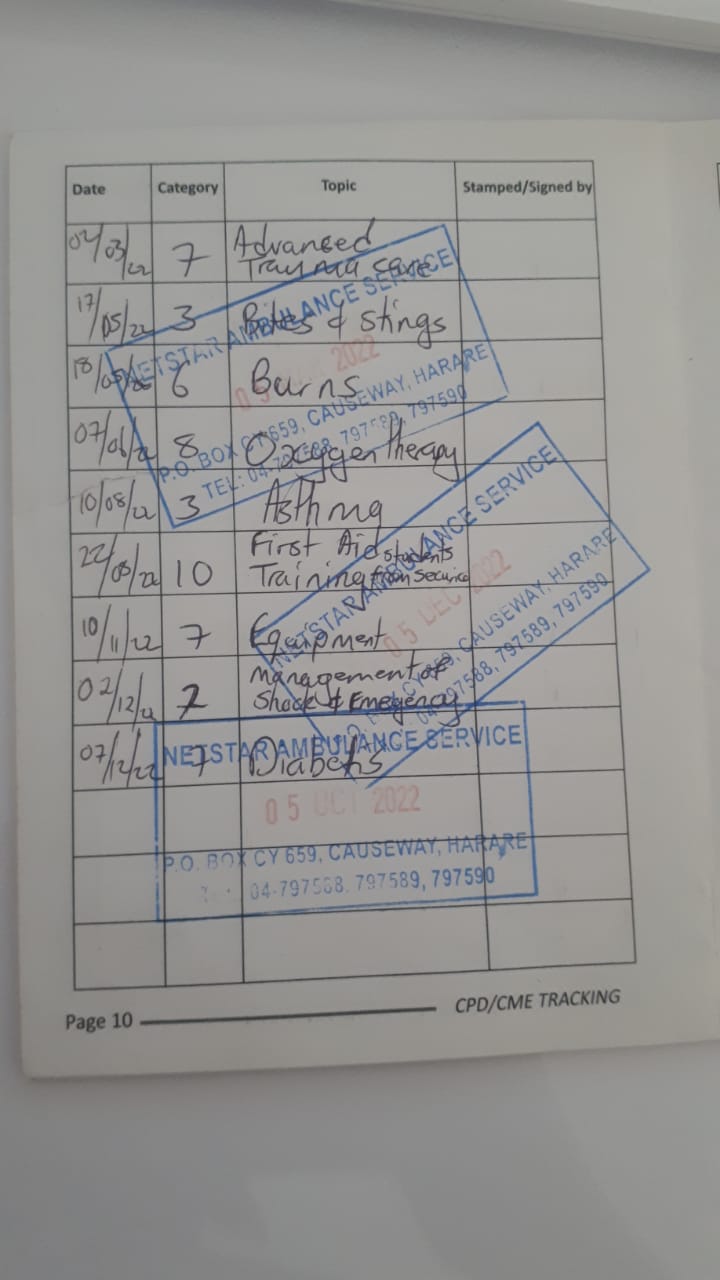 Date Category Topic Stamped/Signed by
02/03/22 7 Advanced
Trauma care
17/05/22 3 Bites & Stings
18/05/22 6 Burns
07/06/22 8 Oxygen therapy
10/08/22 3 Asthma
22/08/22 10 First Aid students
Training from Securico
10/11/22 7 Equipment
02/12/22 7 Management of
Shock & Emegency
07/12/22 7 Diabets
NETSTAR AMBULANCE SERVICE
2022
P.O. BOX CY 659, CAUSEWAY, HARARE
TEL: 04-797588, 797589, 797590
NETSTAR AMBULANCE SERVICE
05 DEC 2022
P.O. BOX CY 659, CAUSEWAY, HARARE
04-797588, 797589, 797590
NETSTAR AMBULANCE SERVICE
05 OCT 2022
P.O. BOX CY 659, CAUSEWAY, HARARE
04-797588, 797589, 797590
Page 10 CPD/CME TRACKING